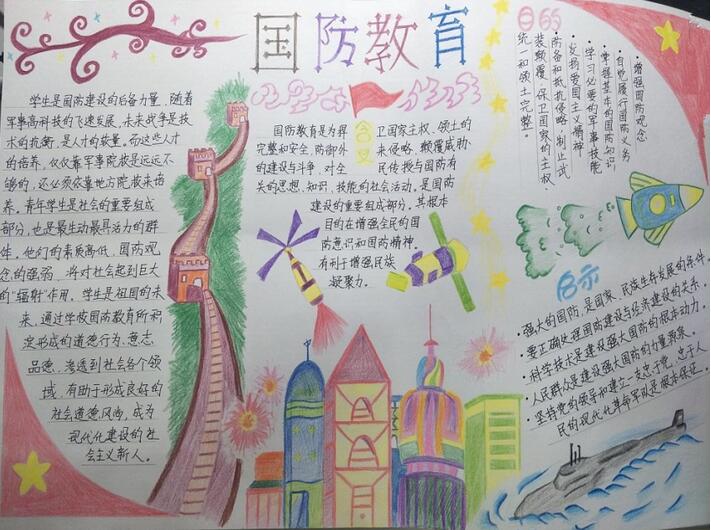 国防教育
学生是国防建设的后备力量，随着
军事高科技的飞速发展，未来战争是技
术的抗衡，是人才的较量。而这些人才
的培养，仅仅靠军事院校是远远不
够的，还必须依靠地方院校来培
养。青年学生是社会的重要组成
部分，也是最生动最具活力的群
体，他们的素质高低，国防观
念的强弱，将对社会起到巨大
的"辐射"作用。学生是祖国的未
来，通过学校国防教育所积
淀形成的道德行为、意志、
品德，渗透到社会各个领
域，有助于形成良好的
社会道德风尚，成为
现代化建设的社
会主义新人。
含义
国防教育是为捍卫国家主权、领土的
完整和安全，防御外来侵略、颠覆威胁，
的建设与斗争，对全民传授与国防有
关的思想、知识、技能的社会活动。是国防
建设的重要组成部分，其根本
目的在增强全民的国
防意识和国防精神。
有利于增强民族
凝聚力。
目的
·增强国防观念
·自觉履行国防义务
·掌握基本的国防知识
·学习必要的军事技能
·发扬爱国主义精神
防备和抵抗侵略，制止武
装颠覆，保卫国家的主权、
统一和领土完整。
启示
·强大的国防，是国家、民族生存发展的条件。
·要正确处理国防建设与经济建设的关系。
·科学技术是建设强大国防的根本动力。
·人民群众是建设强大国防的力量源泉。
·坚持党的领导和建立一支忠于党、忠于人
民的现代化革命军队是根本保证。